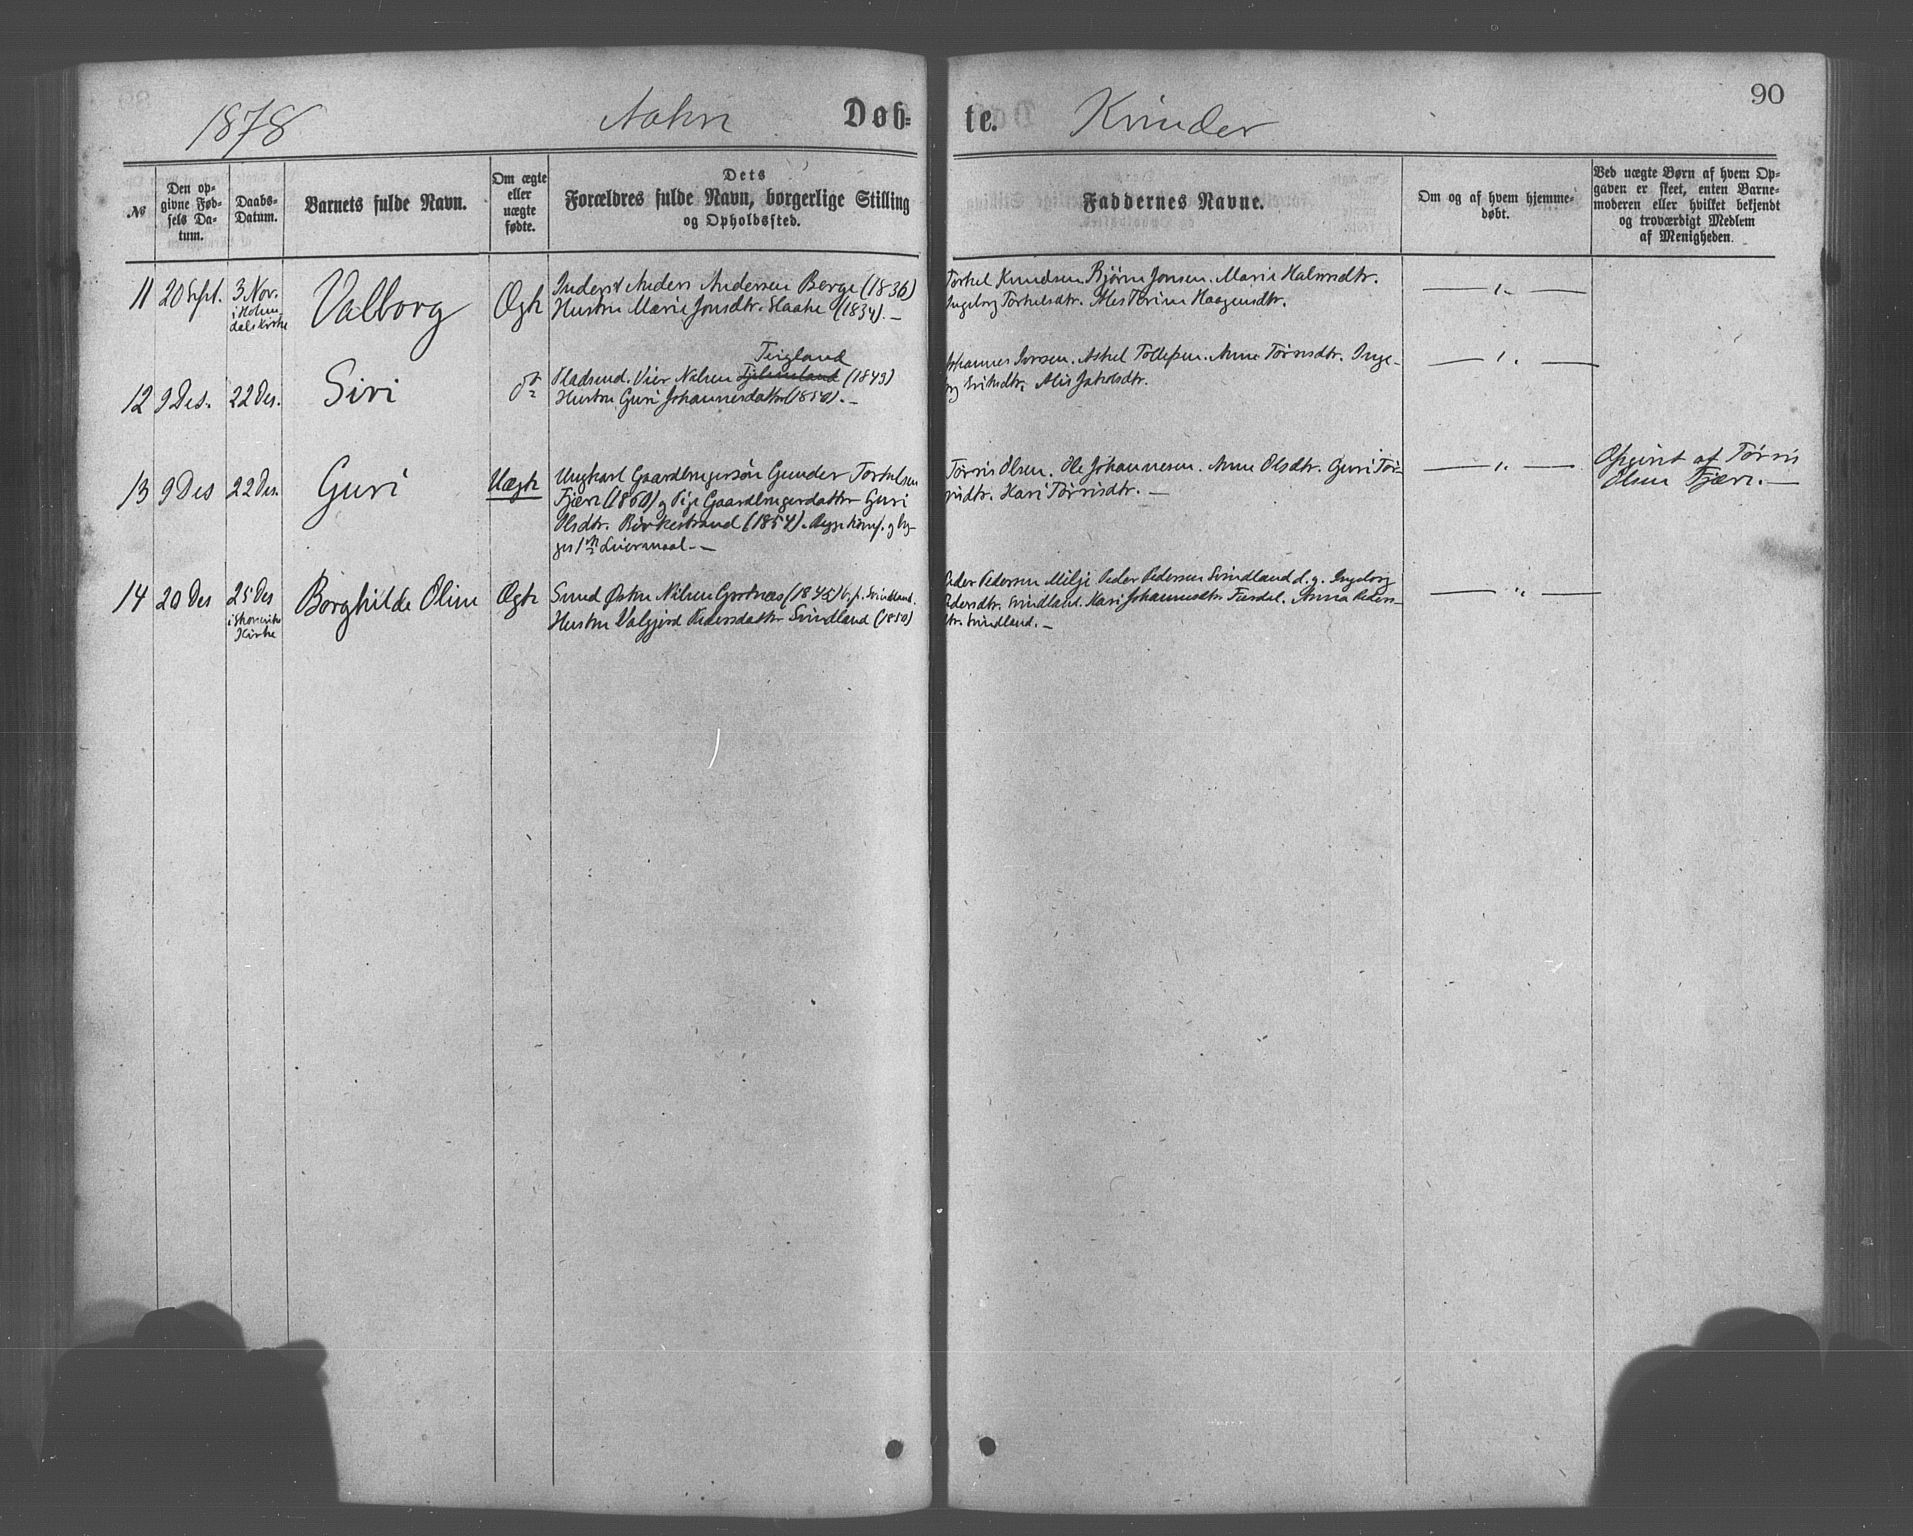 1878
Døb=
te.
Kvinder
90
№
Den op=
givne Fød=
sels Da=
tum.
Daabs=
Datum.
Barnets fulde Navn.
Om ægte
eller
uægte
fødte.
Dets
Forældres fulde Navn, borgerlige Stilling
og Opholdssted.
Faddernes Navne.
Om og af hvem hjemme=
døbt.
Ved uægte Børn af hvem Op=
gaven er skeet, enten Barne=
moderen eller hvilket bekjendt
og troværdigt Medlem
af Menigheden.
11
20 Sept.
3 Nov.
i Holm
dals Kirke
Valborg
Ægte
Inderst Anders Andersen Berge (1836)
Hustru Marie Jonsdtr. Slaake (1834). —
Torkel Knudsen Bjørn Jonsen. Marie Halvorsdtr.
Ingeborg Torkelsdtr. Alis Torine Haagensdtr.
— „ —
12
9 Des.
22 Des.
Siri
do
Teigland
Pladsmd. Vier Nilsen (1849)
Hustru Guri Johannesdatter (1850). —
Johannes Iversen. Askel Tollefsen. Anne Tørrisdtr. Inge-
borg Eriksdtr. Alis Jakobsdtr.
— „ —
13
9 Des
22 Des.
Guri
Uægte
Ungkarl Gaardbrugersøn Gunder Torkelsen
Fjære (1860) og Pige Gaardbrugerdatter Guri
Olsdtr. Birkestrand (1854). Begge Konf. og be-
ges 1ste Leiermaal. —
Tørris Olsen. Ole Johannesen. Anne Olsdtr. Guri Tør-
risdtr. Kari Tørrisdtr. —
— „ —
Opgivet af Tørris
Olsen Fjære. —
14
20 Des
25 Des
Kirke
Borghilde Oline
Ægte
Smed Østen Nilsen (1845) Svindland.
Hustru Valgjerd Pedersdatter Svindland (1850)
Peder Pedersen Milje Peder Pedersen Svindland d.y. Ingeborg
Pedersdtr. Svindland. Kari Johannesdtr. Anna Peders-
dtr. Svindland. —
— „ —